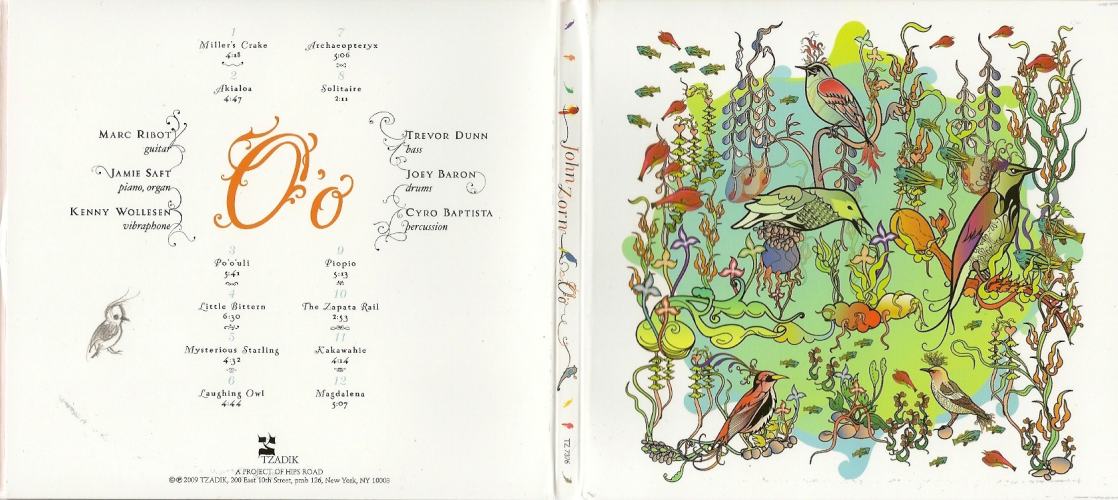 1
Miller's Crake
4:18
2
Akialoa
4:47
7
Archaeopteryx
5:06
8
Solitaire
2:11
MARC RIBOT
guitar
JAMIE SAFT
piano, organ
KENNY WOLLESEN
vibraphone
O'o
TREVOR DUNN
bass
JOEY BARON
drums
CYRO BAPTISTA
percussion
3
Po'o'uli
5:41
4
Little Bittern
6:30
5
Mysterious Starling
4:32
6
Laughing Owl
4:44
9
Piopio
5:13
10
The Zapata Rail
2:53
11
Kakawahie
4:14
12
Magdalena
5:07
TZADIK
A PROJECT OF HIPS ROAD
©℗ 2009 TZADIK, 200 East 10th Street, pmb 126, New York, NY 10003
John Zorn
O'o
TZ 7376